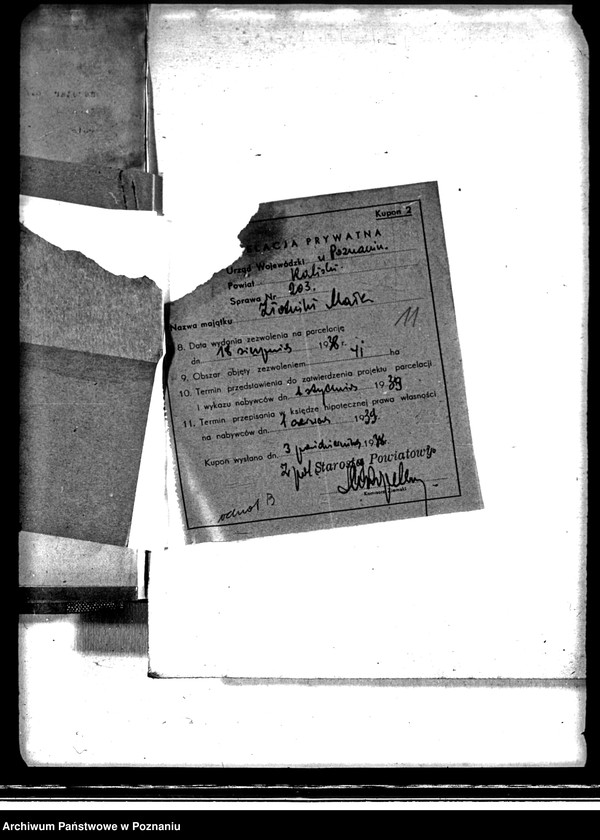 Kupon 2
ELACJA PRYWATNA
Urząd Wojewódzki w Poznaniu.
Powiat Kaliski.
Sprawa Nr. 203.
Nazwa majątku
11
8. Data wydania zezwolenia na parcelację
dn. 18 sierpnia 1938 r.
9. Obszar objęty zezwoleniem ha
10. Termin przedstawienia do zatwierdzenia projektu parcelacji
i wykazu nabywców dn. 1 stycznia 1939
11. Termin przepisania w księdze hipotecznej prawa własności
na nabywców dn. 1939
Kupon wysłano dn. 3 października 1938
Starosta Powiatowy
odnot B
Archiwum Państwowe w Poznaniu